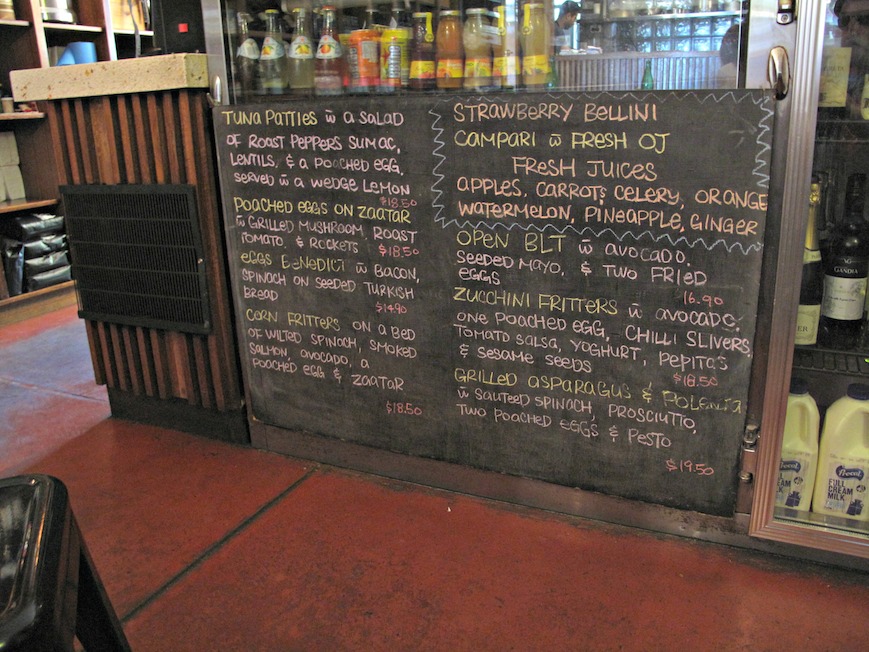 TUNA PATTIES w̄ A SALAD
OF ROAST PEPPERS SUMAC,
LENTILS, & A POACHED EGG,
SERVED w̄ A WEDGE LEMON
$18.50
POACHED EGGS ON ZAATAR
w̄ GRILLED MUSHROOM, ROAST
TOMATO, & ROCKETS $18.50
EGGS BENEDICT w̄ BACON,
SPINACH ON SEEDED TURKISH
BREAD
$14.90
CORN FRITTERS ON A BED
OF WILTED SPINACH, SMOKED
SALMON, AVOCADO, A
POACHED EGG & ZAATAR
$18.50
STRAWBERRY BELLINI
CAMPARI w̄ FRESH OJ
FRESH JUICES
APPLES, CARROTS CELERY, ORANGE
WATERMELON, PINEAPPLE, GINGER
OPEN BLT w̄ AVOCADO,
SEEDED MAYO, & TWO FRIED
EGGS
16.90
ZUCCHINI FRITTERS w̄ AVOCADO,
ONE POACHED EGG, CHILLI SLIVERS
TOMATO SALSA, YOGHURT, PEPITAS
& SESAME SEEDS
$18.50
GRILLED ASPARAGUS & POLENTA
w̄ SAUTEED SPINACH, PROSCIUTTO,
TWO POACHED EGGS & PESTO
$19.50
GANDIA
FULL
CREAM
MILK